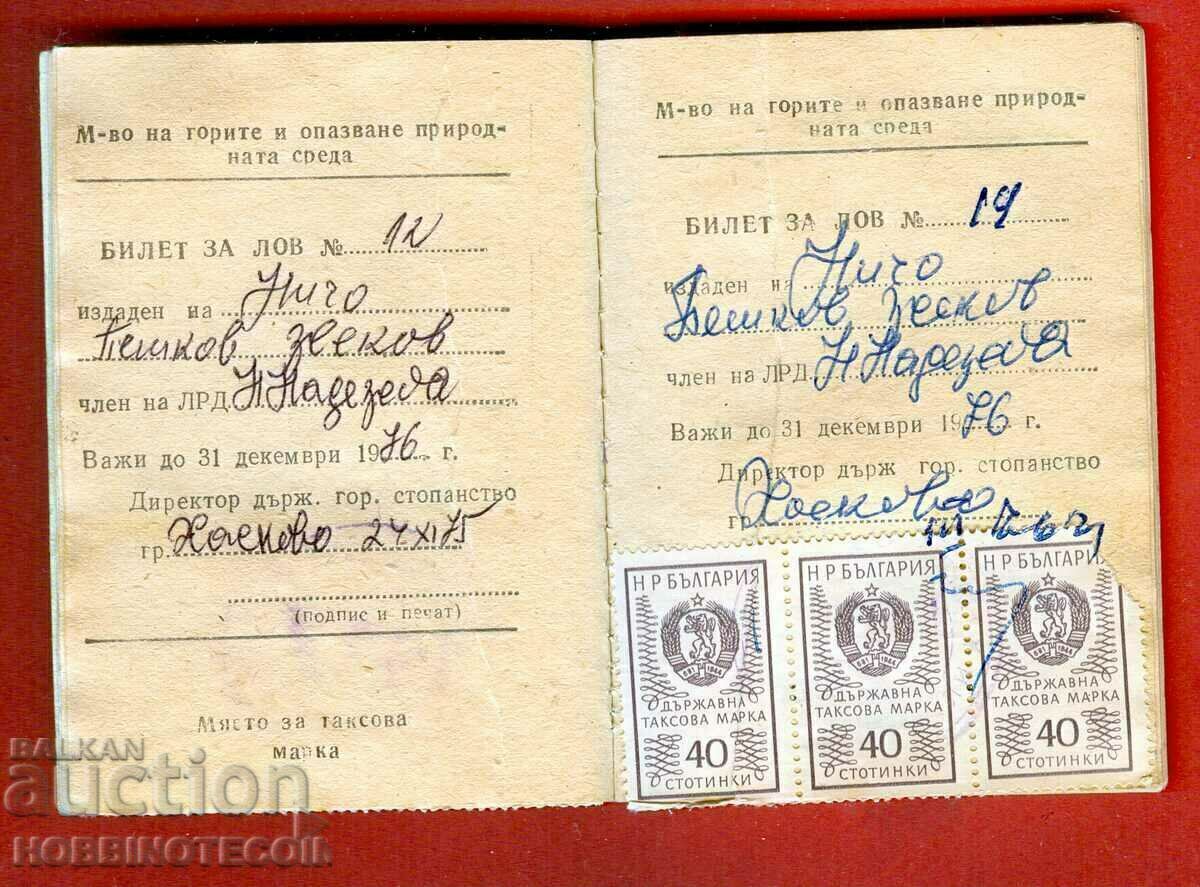 М-во на горите и опазване природ-
ната среда
БИЛЕТ ЗА ЛОВ № 12
издаден на Ничо
Пешков
член на ЛРД
Важи до 31 декември 1976 г.
Директор държ. гор. стопанство
гр. Хасково 24 XI 75
(подпис и печат)
Място за таксова
марка
М-во на горите и опазване природ-
ната среда
БИЛЕТ ЗА ЛОВ № 19
издаден на Ничо
Пешков
член на ЛРД
Важи до 31 декември 1976 г.
Директор държ. гор. стопанство
гр. Хасково
НР БЪЛГАРИЯ
681 1944
ДЪРЖАВНА
ТАКСОВА МАРКА
40
СТОТИНКИ
НР БЪЛГАРИЯ
681 1944
ДЪРЖАВНА
ТАКСОВА МАРКА
40
СТОТИНКИ
НР БЪЛГАРИЯ
681 1944
ДЪРЖАВНА
ТАКСОВА МАРКА
40
СТОТИНКИ
BALKAN
auction
HOBBINOTECOIN